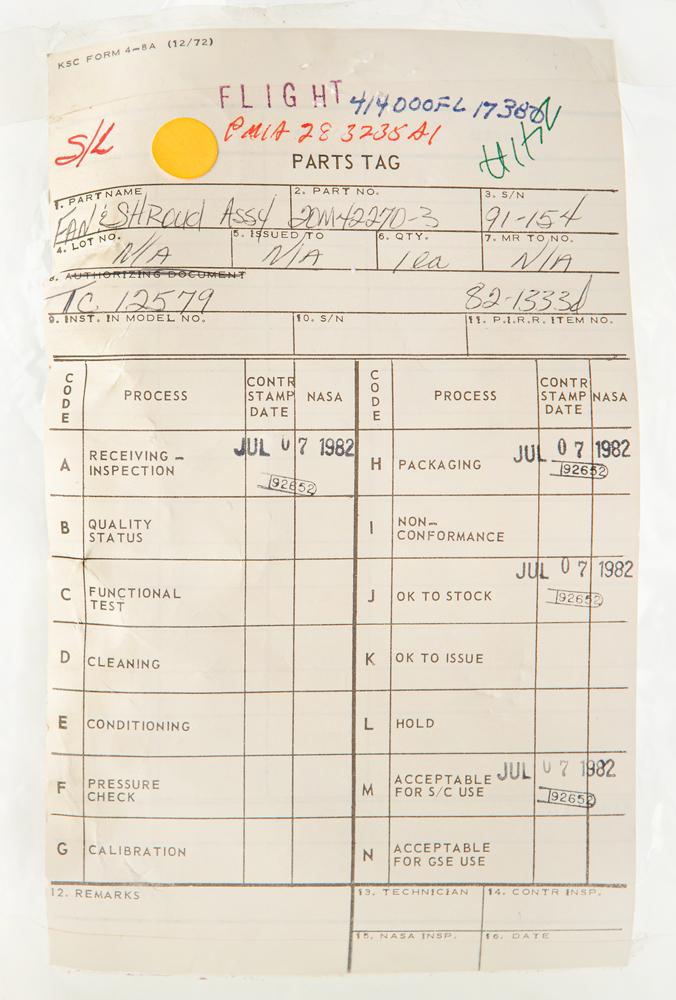 KSC FORM 4-8A (12/72)
FLIGHT 414000FL 17380
S/L PMIA 28 3235 A1
PARTS TAG
1. PART NAME 2. PART NO. 3. S/N
FAN & SHROUD ASSY 20M42270-3 91-154
4. LOT NO. 5. ISSUED TO 6. QTY. 7. MR TO NO.
N/A N/A 1 ea N/A
8. AUTHORIZING DOCUMENT
TC 12579 82-1333d
9. INST. IN MODEL NO. 10. S/N 11. P.I.R.R. ITEM NO.
CODE PROCESS CONTR STAMP DATE NASA CODE PROCESS CONTR STAMP DATE NASA
A RECEIVING - INSPECTION JUL 07 1982 92652 H PACKAGING JUL 07 1982 92652
B QUALITY STATUS I NON-CONFORMANCE
C FUNCTIONAL TEST J OK TO STOCK JUL 07 1982 92652
D CLEANING K OK TO ISSUE
E CONDITIONING L HOLD
F PRESSURE CHECK M ACCEPTABLE FOR S/C USE JUL 07 1982 92652
G CALIBRATION N ACCEPTABLE FOR GSE USE
12. REMARKS 13. TECHNICIAN 14. CONTR INSP.
15. NASA INSP. 16. DATE